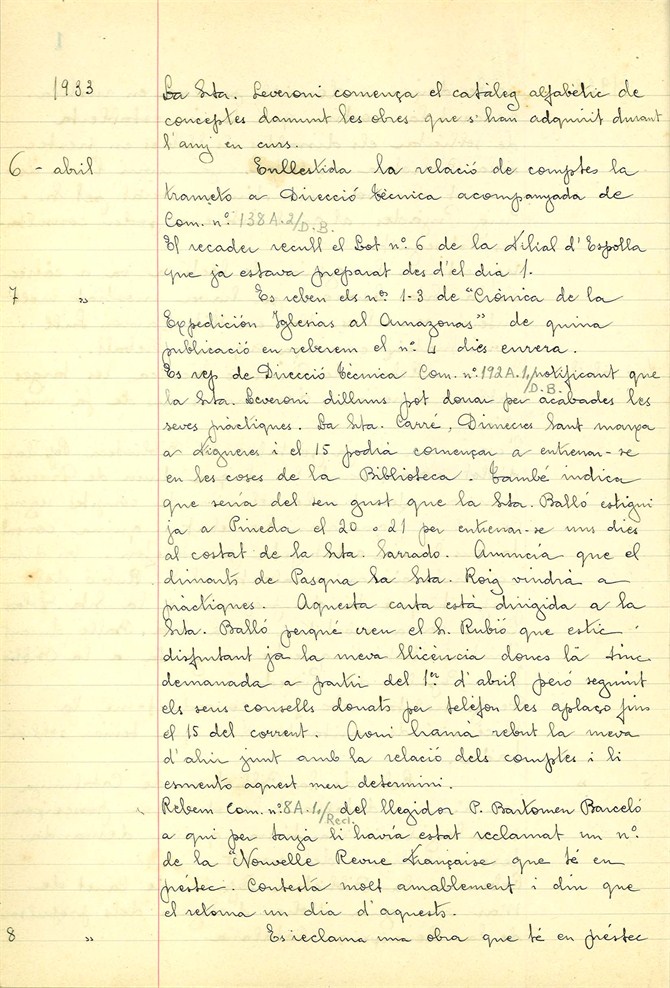 1933
La Srta. Leveroni comença el catàleg alfabètic de
conceptes damunt les obres que s'han adquirit durant
l'any en curs.
6 - abril Enllestida la relació de comptes la
trameto a Direcció Tècnica acompanyada de
Com. nº 138 A.2/D.B.
El recader recull el Lot nº 6 de la Filial d'Espolla
que ja estava preparat des d'el dia 1.
7 " Es reben els nos 1-3 de "Crònica de la
Expedición Iglesias al Amazonas" de quina
publicació en reberem el nº 4 dies enrera.
Es rep de Direcció Tècnica Com. nº 192 A.1/D.B. notificant que
la Srta. Leveroni dilluns pot donar per acabades les
seves pràctiques. La Srta. Carré, Dimecres Sant marxa
a Figueres i el 15 podrà començar a entrenar-se
en les coses de la Biblioteca. També indica
que seria del seu gust que la Srta. Balló estigui
ja a Pineda el 20 o 21 per entrenar-se uns dies
al costat de la Srta. Sarrado. Anuncia que el
dimarts de Pasqua la Srta. Roig vindrà a
pràctiques. Aquesta carta està dirigida a la
Srta. Balló perquè creu el S. Rubió que estic
disfrutant ja la meva llicència doncs la tinc
demanada a partir del 1er d'abril però seguint
els seus consells donats per telèfon les aplaço fins
el 15 del corrent. Avui haurà rebut la meva
d'ahir junt amb la relació dels comptes i li
esmento aquest meu determini.
Rebem Com. nº 8 A.1./Recl. del llegidor P. Bartomeu Barceló
a qui per tarjà li havía estat reclamat un nº
de la "Nouvelle Revue Française que té en
préstec. Contestà molt amablement i diu que
el retorna un dia d'aquests.
8 " Es reclama una obra que té en préstec